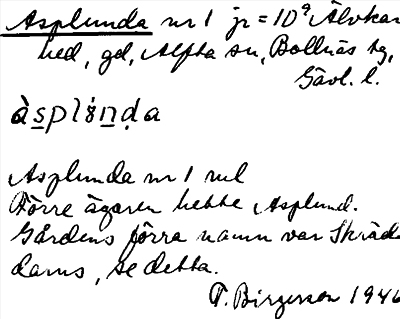 Asplunda nr 1 jr = 10⁹ Älvkar
hed, gd, Alfta sn, Bollnäs tg,
Gävl. l.
àsplṇda
Asplunda nr 1 rul
Förre ägaren hette Asplund.
Gårdens förra namn var Skräd
dams, se detta.
T. Birgersson 1946